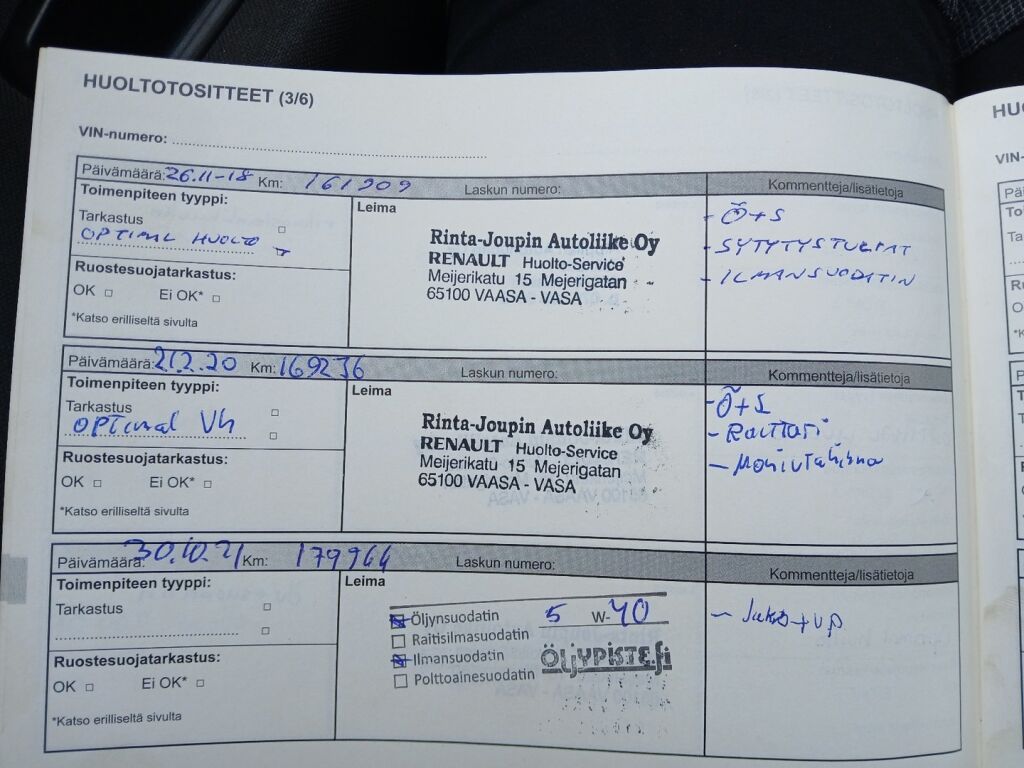 HUOLTOTOSITTEET (3/6)
VIN-numero:
Päivämäärä: 26.11-18 Km: 161909 Laskun numero:
Kommentteja/lisätietoja
Toimenpiteen tyyppi:
Tarkastus
OPTIMAL HUOLTO
Ruostesuojatarkastus:
OK Ei OK*
*Katso erilliseltä sivulta
Leima
Rinta-Joupin Autoliike Oy
RENAULT Huolto-Service
Meijerikatu 15 Mejerigatan
65100 VAASA - VASA
- Ö+S
- SYTYTYSTULPAT
- ILMANSUODATIN
Päivämäärä: 21.2.20 Km: 169236 Laskun numero:
Kommentteja/lisätietoja
Toimenpiteen tyyppi:
Tarkastus
OPTimal Vh
Ruostesuojatarkastus:
OK Ei OK*
*Katso erilliseltä sivulta
Leima
Rinta-Joupin Autoliike Oy
RENAULT Huolto-Service
Meijerikatu 15 Mejerigatan
65100 VAASA - VASA
- Ö+S
- Raittari
- Moniurahihna
Päivämäärä: 30.10.21 Km: 179966 Laskun numero:
Kommentteja/lisätietoja
Toimenpiteen tyyppi:
Tarkastus
Ruostesuojatarkastus:
OK Ei OK*
*Katso erilliseltä sivulta
Leima
Öljynsuodatin 5 W-40
Raitisilmasuodatin
Ilmansuodatin
Polttoainesuodatin
ÖLJYPISTE.fi
- Jako+VP
HU
VIN-